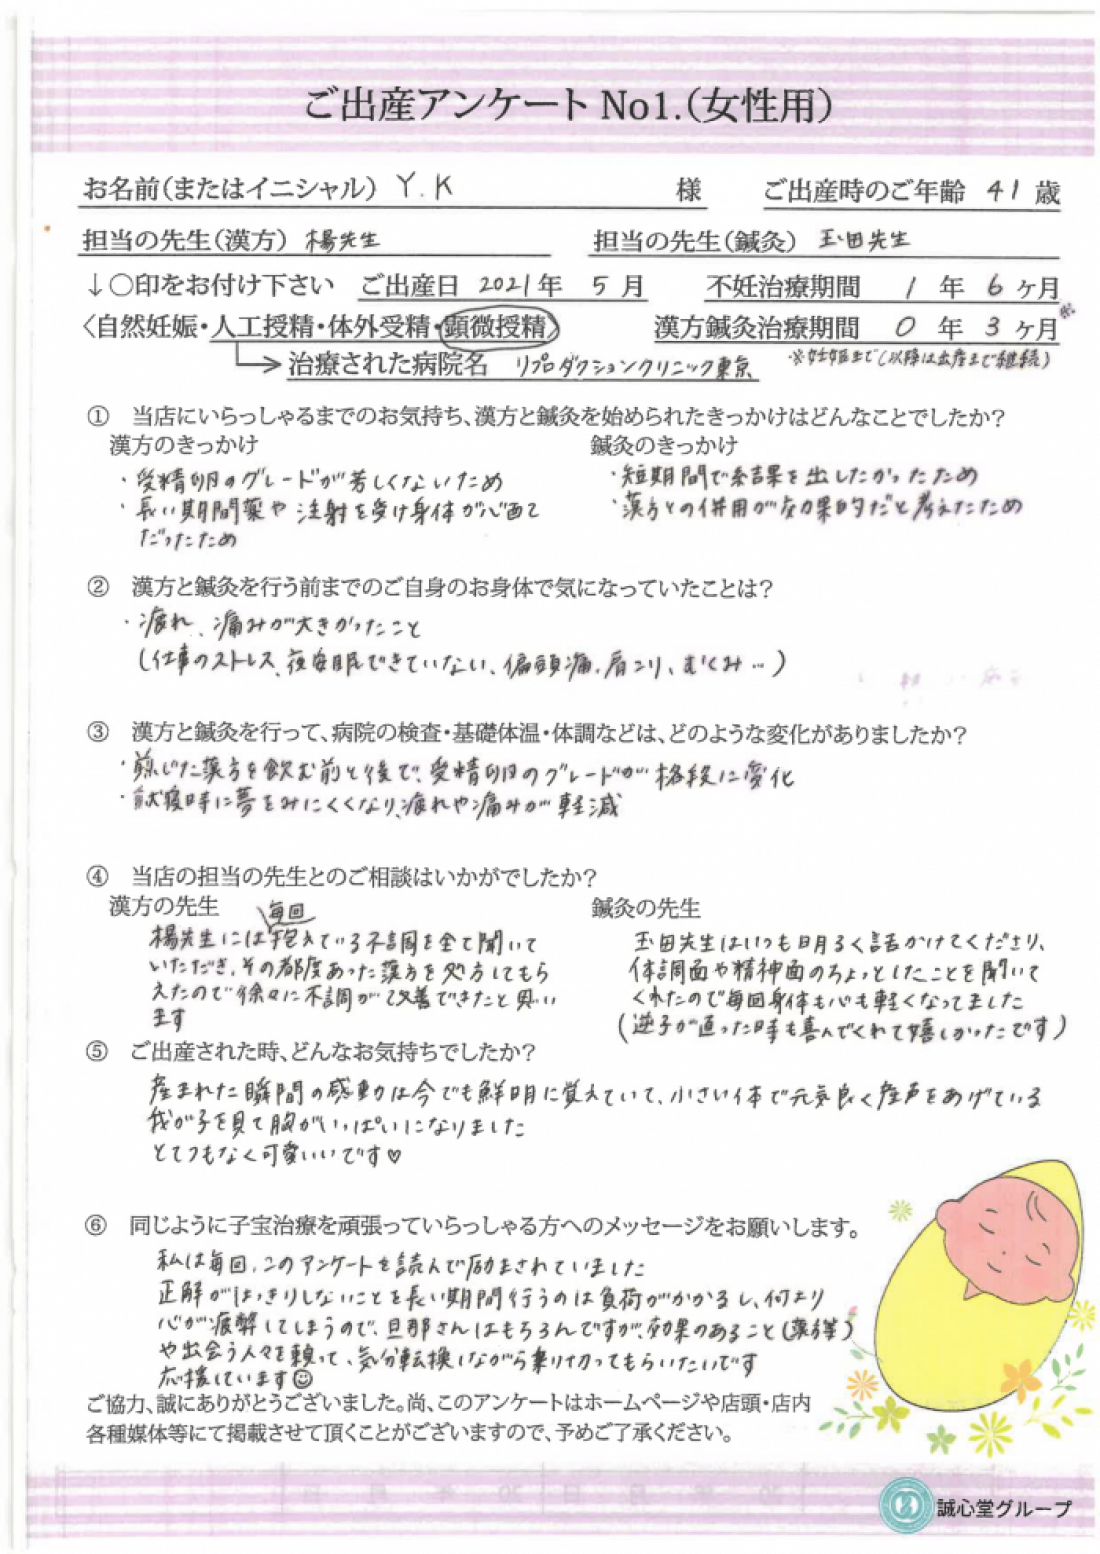 ご出産アンケート No1.(女性用)
お名前(またはイニシャル) Y.K 様 ご出産時のご年齢 41 歳
担当の先生(漢方) 楊先生 担当の先生(鍼灸) 玉田先生
↓○印をお付け下さい ご出産日 2021年 5月 不妊治療期間 1年 6ヶ月
〈自然妊娠・人工授精・体外受精・顕微授精〉 漢方鍼灸治療期間 0年 3ヶ月※
治療された病院名 リプロダクションクリニック東京 ※妊娠まで(以降は出産まで継続)
① 当店にいらっしゃるまでのお気持ち、漢方と鍼灸を始められたきっかけはどんなことでしたか?
漢方のきっかけ 鍼灸のきっかけ
・受精卵のグレードが芳しくないため ・短期間で結果を出したかったため
・長い期間薬や注射を受け身体が心配 ・漢方との併用が効果的だと考えたため
だったため
② 漢方と鍼灸を行う前までのご自身のお身体で気になっていたことは?
・疲れ、痛みが大きかったこと
(仕事のストレス、夜安眠できていない、偏頭痛、肩こり、むくみ…)
③ 漢方と鍼灸を行って、病院の検査・基礎体温・体調などは、どのような変化がありましたか?
・煎じた漢方を飲む前と後で、受精卵のグレードが格段に変化
・就寝時に夢をみにくくなり、疲れや痛みが軽減
④ 当店の担当の先生とのご相談はいかがでしたか?
漢方の先生 鍼灸の先生
毎回
楊先生には抱えている不調を全て聞いて 玉田先生はいつも明るく話かけてくださり、
いただき、その都度あった漢方を処方してもら 体調面や精神面のちょっとしたことを聞いて
えたので徐々に不調が改善できたと思い くれたので毎回身体も心も軽くなってました
ます (逆子が直った時も喜んでくれて嬉しかったです)
⑤ ご出産された時、どんなお気持ちでしたか?
産まれた瞬間の感動は今でも鮮明に覚えていて、小さい体で元気良く産声をあげている
我が子を見て胸がいっぱいになりました
とてつもなく可愛いいです♡
⑥ 同じように子宝治療を頑張っていらっしゃる方へのメッセージをお願いします。
私は毎回、このアンケートを読んで励まされていました
正解がはっきりしないことを長い期間行うのは負荷がかかるし、何より
心が疲弊してしまうので、旦那さんはもちろんですが、効果のあること(漢方等)
や出会う人々を頼って、気分転換しながら乗り切ってもらいたいです
応援しています☺
ご協力、誠にありがとうございました。尚、このアンケートはホームページや店頭・店内
各種媒体等にて掲載させて頂くことがございますので、予めご了承ください。
誠心堂グループ